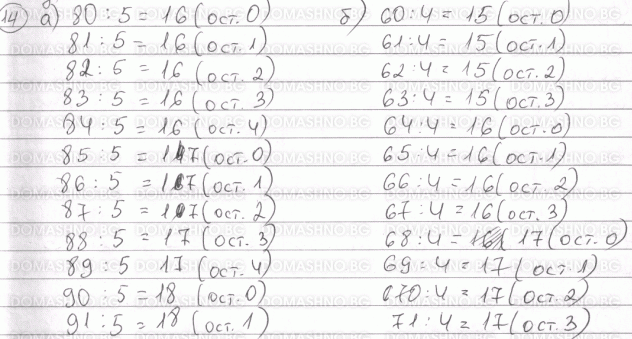 14 а) 80 : 5 = 16 (ост. 0)
81 : 5 = 16 (ост. 1)
82 : 5 = 16 (ост. 2)
83 : 5 = 16 (ост. 3)
84 : 5 = 16 (ост. 4)
85 : 5 = 17 (ост. 0)
86 : 5 = 17 (ост. 1)
87 : 5 = 17 (ост. 2)
88 : 5 = 17 (ост. 3)
89 : 5 17 (ост. 4)
90 : 5 = 18 (ост. 0)
91 : 5 = 18 (ост. 1)
б) 60 : 4 = 15 (ост. 0)
61 : 4 = 15 (ост. 1)
62 : 4 = 15 (ост. 2)
63 : 4 = 15 (ост. 3)
64 : 4 = 16 (ост. 0)
65 : 4 = 16 (ост. 1)
66 : 4 = 16 (ост. 2)
67 : 4 = 16 (ост. 3)
68 : 4 = 17 (ост. 0)
69 : 4 = 17 (ост. 1)
70 : 4 = 17 (ост. 2)
71 : 4 = 17 (ост. 3)
DOMASHNO.BG